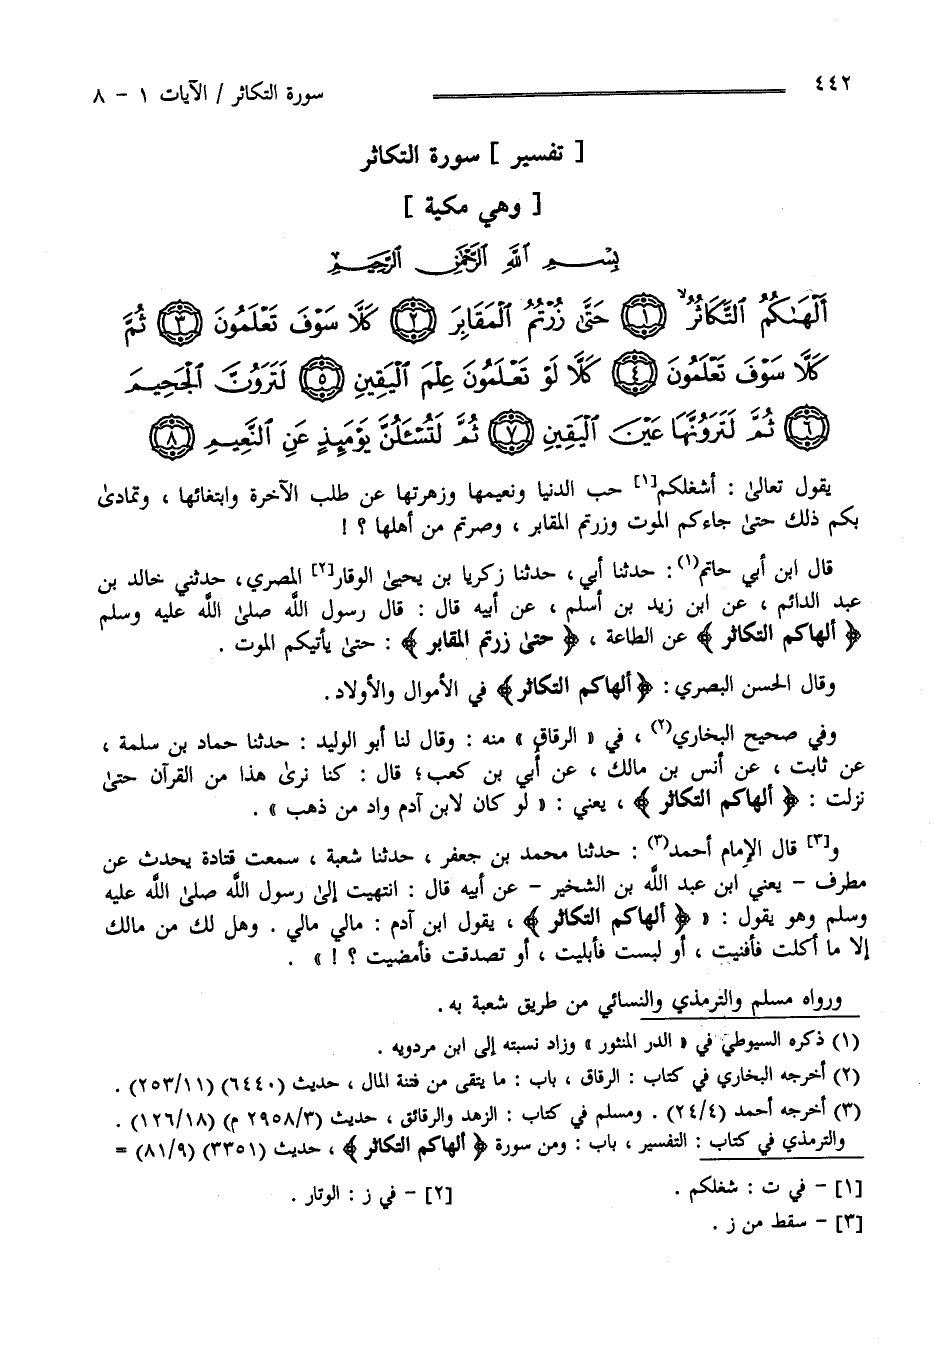 ٤٤٢ سورة التكاثر / الآيات ١ – ٨
[ تفسير ] سورة التكاثر
[ وهي مكية ]
بِسْمِ اللَّهِ الرَّحْمَٰنِ الرَّحِيمِ
أَلْهَىٰكُمُ ٱلتَّكَاثُرُ ۙ (١) حَتَّىٰ زُرْتُمُ ٱلْمَقَابِرَ (٢) كَلَّا سَوْفَ تَعْلَمُونَ (٣) ثُمَّ
كَلَّا سَوْفَ تَعْلَمُونَ (٤) كَلَّا لَوْ تَعْلَمُونَ عِلْمَ ٱلْيَقِينِ (٥) لَتَرَوُنَّ ٱلْجَحِيمَ
(٦) ثُمَّ لَتَرَوُنَّهَا عَيْنَ ٱلْيَقِينِ (٧) ثُمَّ لَتُسْـَٔلُنَّ يَوْمَئِذٍ عَنِ ٱلنَّعِيمِ (٨)
يقول تعالىٰ : أشغلكم[١] حب الدنيا ونعيمها وزهرتها عن طلب الآخرة وابتغائها ، وتمادىٰ
بكم ذلك حتىٰ جاءكم الموت وزرتم المقابر ، وصرتم من أهلها ؟ !
قال ابن أبي حاتم(١) : حدثنا أبي ، حدثنا زكريا بن يحيىٰ الوقار[٢] المصري ، حدثني خالد بن
عبد الدائم ، عن ابن زيد بن أسلم ، عن أبيه قال : قال رسول اللَّه صلىٰ اللَّه عليه وسلم
﴿ ألهاكم التكاثر ﴾ عن الطاعة ، ﴿ حتىٰ زرتم المقابر ﴾ : حتىٰ يأتيكم الموت .
وقال الحسن البصري : ﴿ ألهاكم التكاثر ﴾ في الأموال والأولاد .
وفي صحيح البخاري(٢) ، في « الرقاق » منه : وقال لنا أبو الوليد : حدثنا حماد بن سلمة ،
عن ثابت ، عن أنس بن مالك ، عن أُبي بن كعب ؛ قال : كنا نرىٰ هذا من القرآن حتىٰ
نزلت : ﴿ ألهاكم التكاثر ﴾ ، يعني : « لو كان لابن آدم واد من ذهب » .
و[٣] قال الإمام أحمد(٣) : حدثنا محمد بن جعفر ، حدثنا شعبة ، سمعت قتادة يحدث عن
مطرف – يعني ابن عبد اللَّه بن الشخير – عن أبيه قال : انتهيت إلىٰ رسول اللَّه صلىٰ اللَّه عليه
وسلم وهو يقول : « ﴿ ألهاكم التكاثر ﴾ ، يقول ابن آدم : مالي مالي . وهل لك من مالك
إلا ما أكلت فأفنيت ، أو لبست فأبليت ، أو تصدقت فأمضيت ؟ ! » .
ورواه مسلم والترمذي والنسائي من طريق شعبة به .
(١) ذكره السيوطي في « الدر المنثور » وزاد نسبته إلى ابن مردويه .
(٢) أخرجه البخاري في كتاب : الرقاق ، باب : ما يتقى من فتنة المال ، حديث (٦٤٤٠) (٢٥٣/١١) .
(٣) أخرجه أحمد (٢٤/٤) . ومسلم في كتاب : الزهد والرقائق ، حديث (٢٩٥٨/٣ م) (١٢٦/١٨) .
والترمذي في كتاب : التفسير ، باب : ومن سورة ﴿ ألهاكم التكاثر ﴾ ، حديث (٣٣٥١) (٨١/٩) =
[١] – في ت : شغلكم . [٢] – في ز : الوتار .
[٣] – سقط من ز .